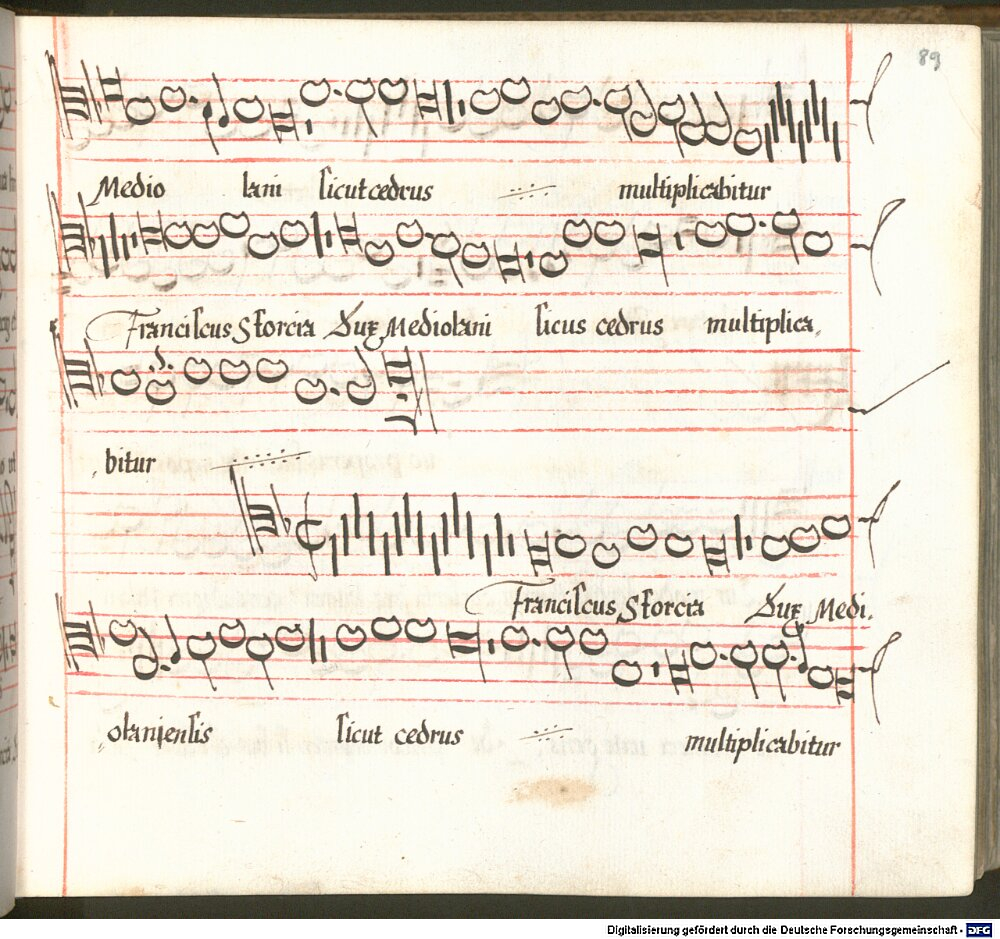 89
Medio lani sicut cedrus multiplicabitur
Franciscus Sforcia Dux Mediolani sicus cedrus multiplica,
, bitur
Franciscus Sforcia Dux Medi.
,, olaniensis sicut cedrus multiplicabitur
Digitalisierung gefördert durch die Deutsche Forschungsgemeinschaft - DFG